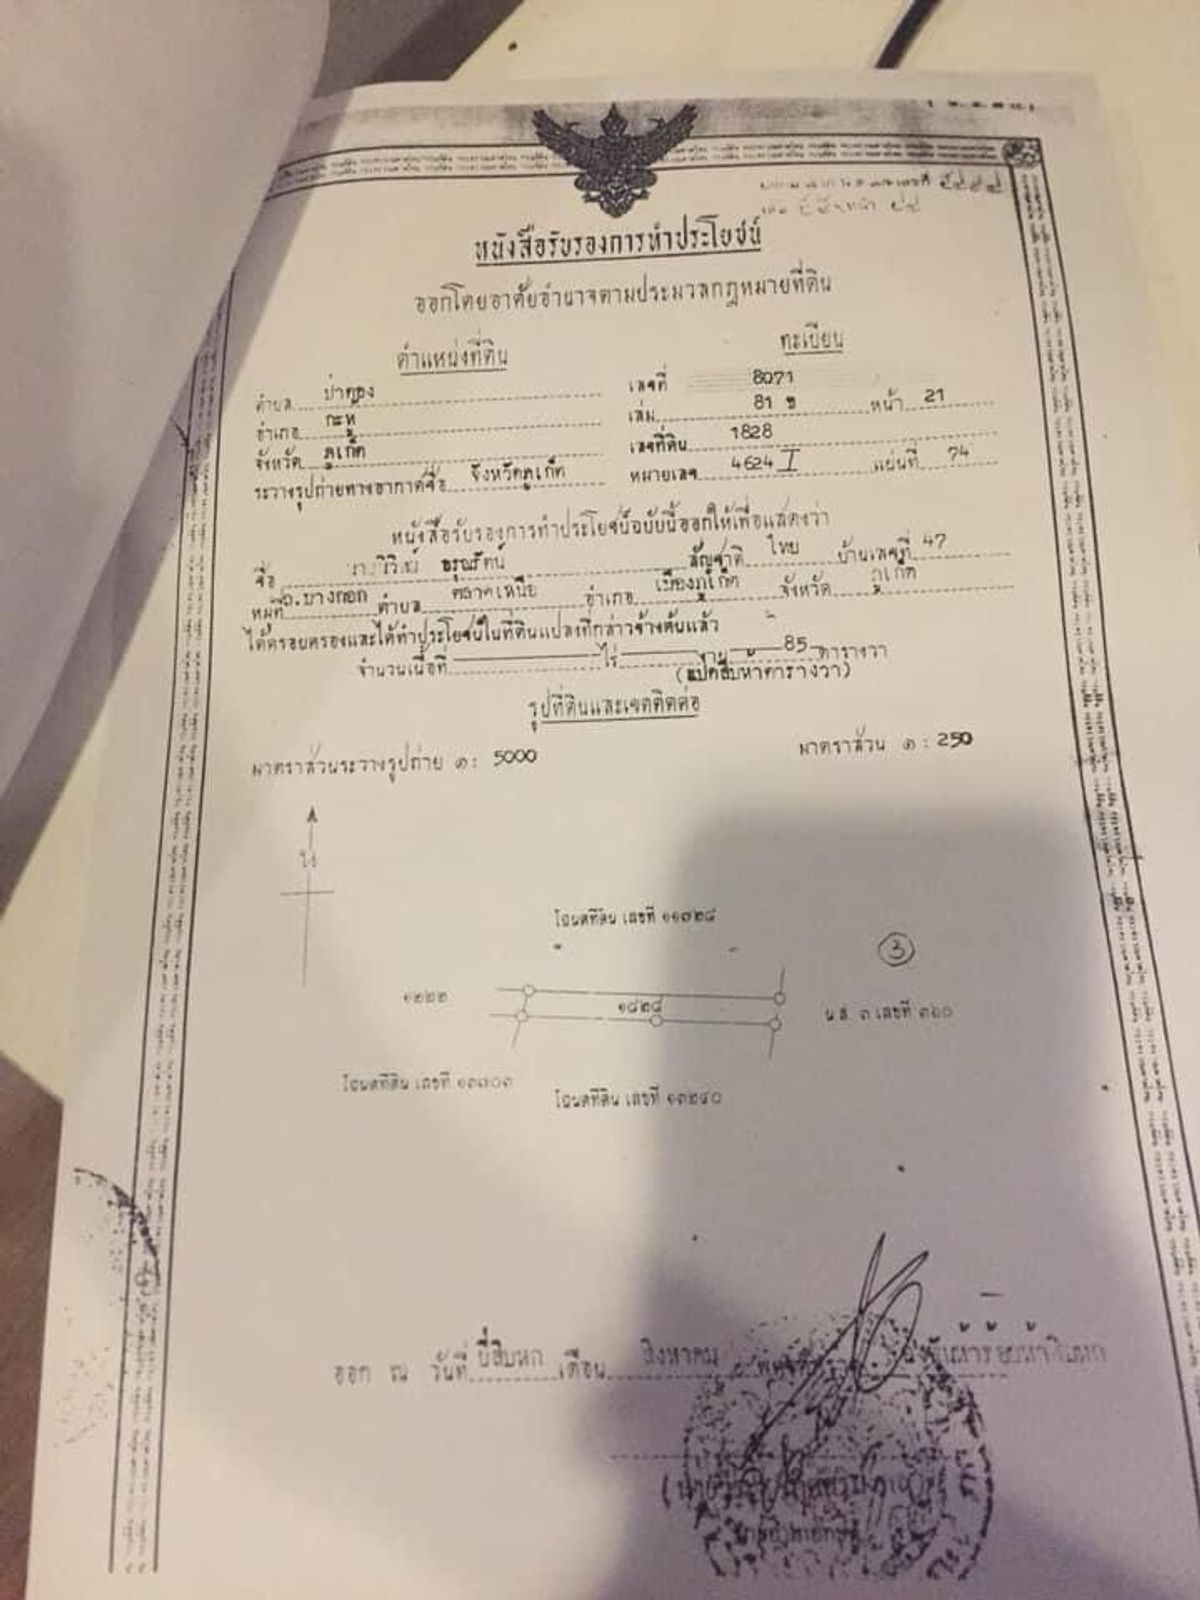 หนังสือรับรองการทำประโยชน์
ออกโดยอาศัยอำนาจตามประมวลกฎหมายที่ดิน
ตำแหน่งที่ดิน
ทะเบียน
ตำบล ป่าตอง
เลขที่ 8071
อำเภอ กะทู้
เล่ม 81 ข หน้า 21
จังหวัด ภูเก็ต
เลขที่ดิน 1828
ระวางรูปถ่ายทางอากาศชื่อ จังหวัดภูเก็ต
หมายเลข 4624 I แผ่นที่ 74
หนังสือรับรองการทำประโยชน์ฉบับนี้ออกให้เพื่อแสดงว่า
ชื่อ อรุณรัตน์ สัญชาติ ไทย บ้านเลขที่ 47
หมู่ที่ ถ.บางกอก ตำบล ตลาดเหนือ อำเภอ เมืองภูเก็ต จังหวัด ภูเก็ต
ได้ครอบครองและได้ทำประโยชน์ในที่ดินแปลงที่กล่าวข้างต้นแล้ว
จำนวนเนื้อที่ ไร่ งาน 85 ตารางวา
(แปดสิบห้าตารางวา)
รูปที่ดินและเขตติดต่อ
มาตราส่วนระวางรูปถ่าย ๑: 5000
มาตราส่วน ๑: 250
น
โฉนดที่ดิน เลขที่ ๑๑๓๒๘
3
๑๒๒๒
๑๘๒๘
น.ส. ๓ เลขที่ ๓๖๐
โฉนดที่ดิน เลขที่ ๑๓๗๐๓
โฉนดที่ดิน เลขที่ ๑๓๒๔๐
ออก ณ วันที่ ยี่สิบหก เดือน สิงหาคม